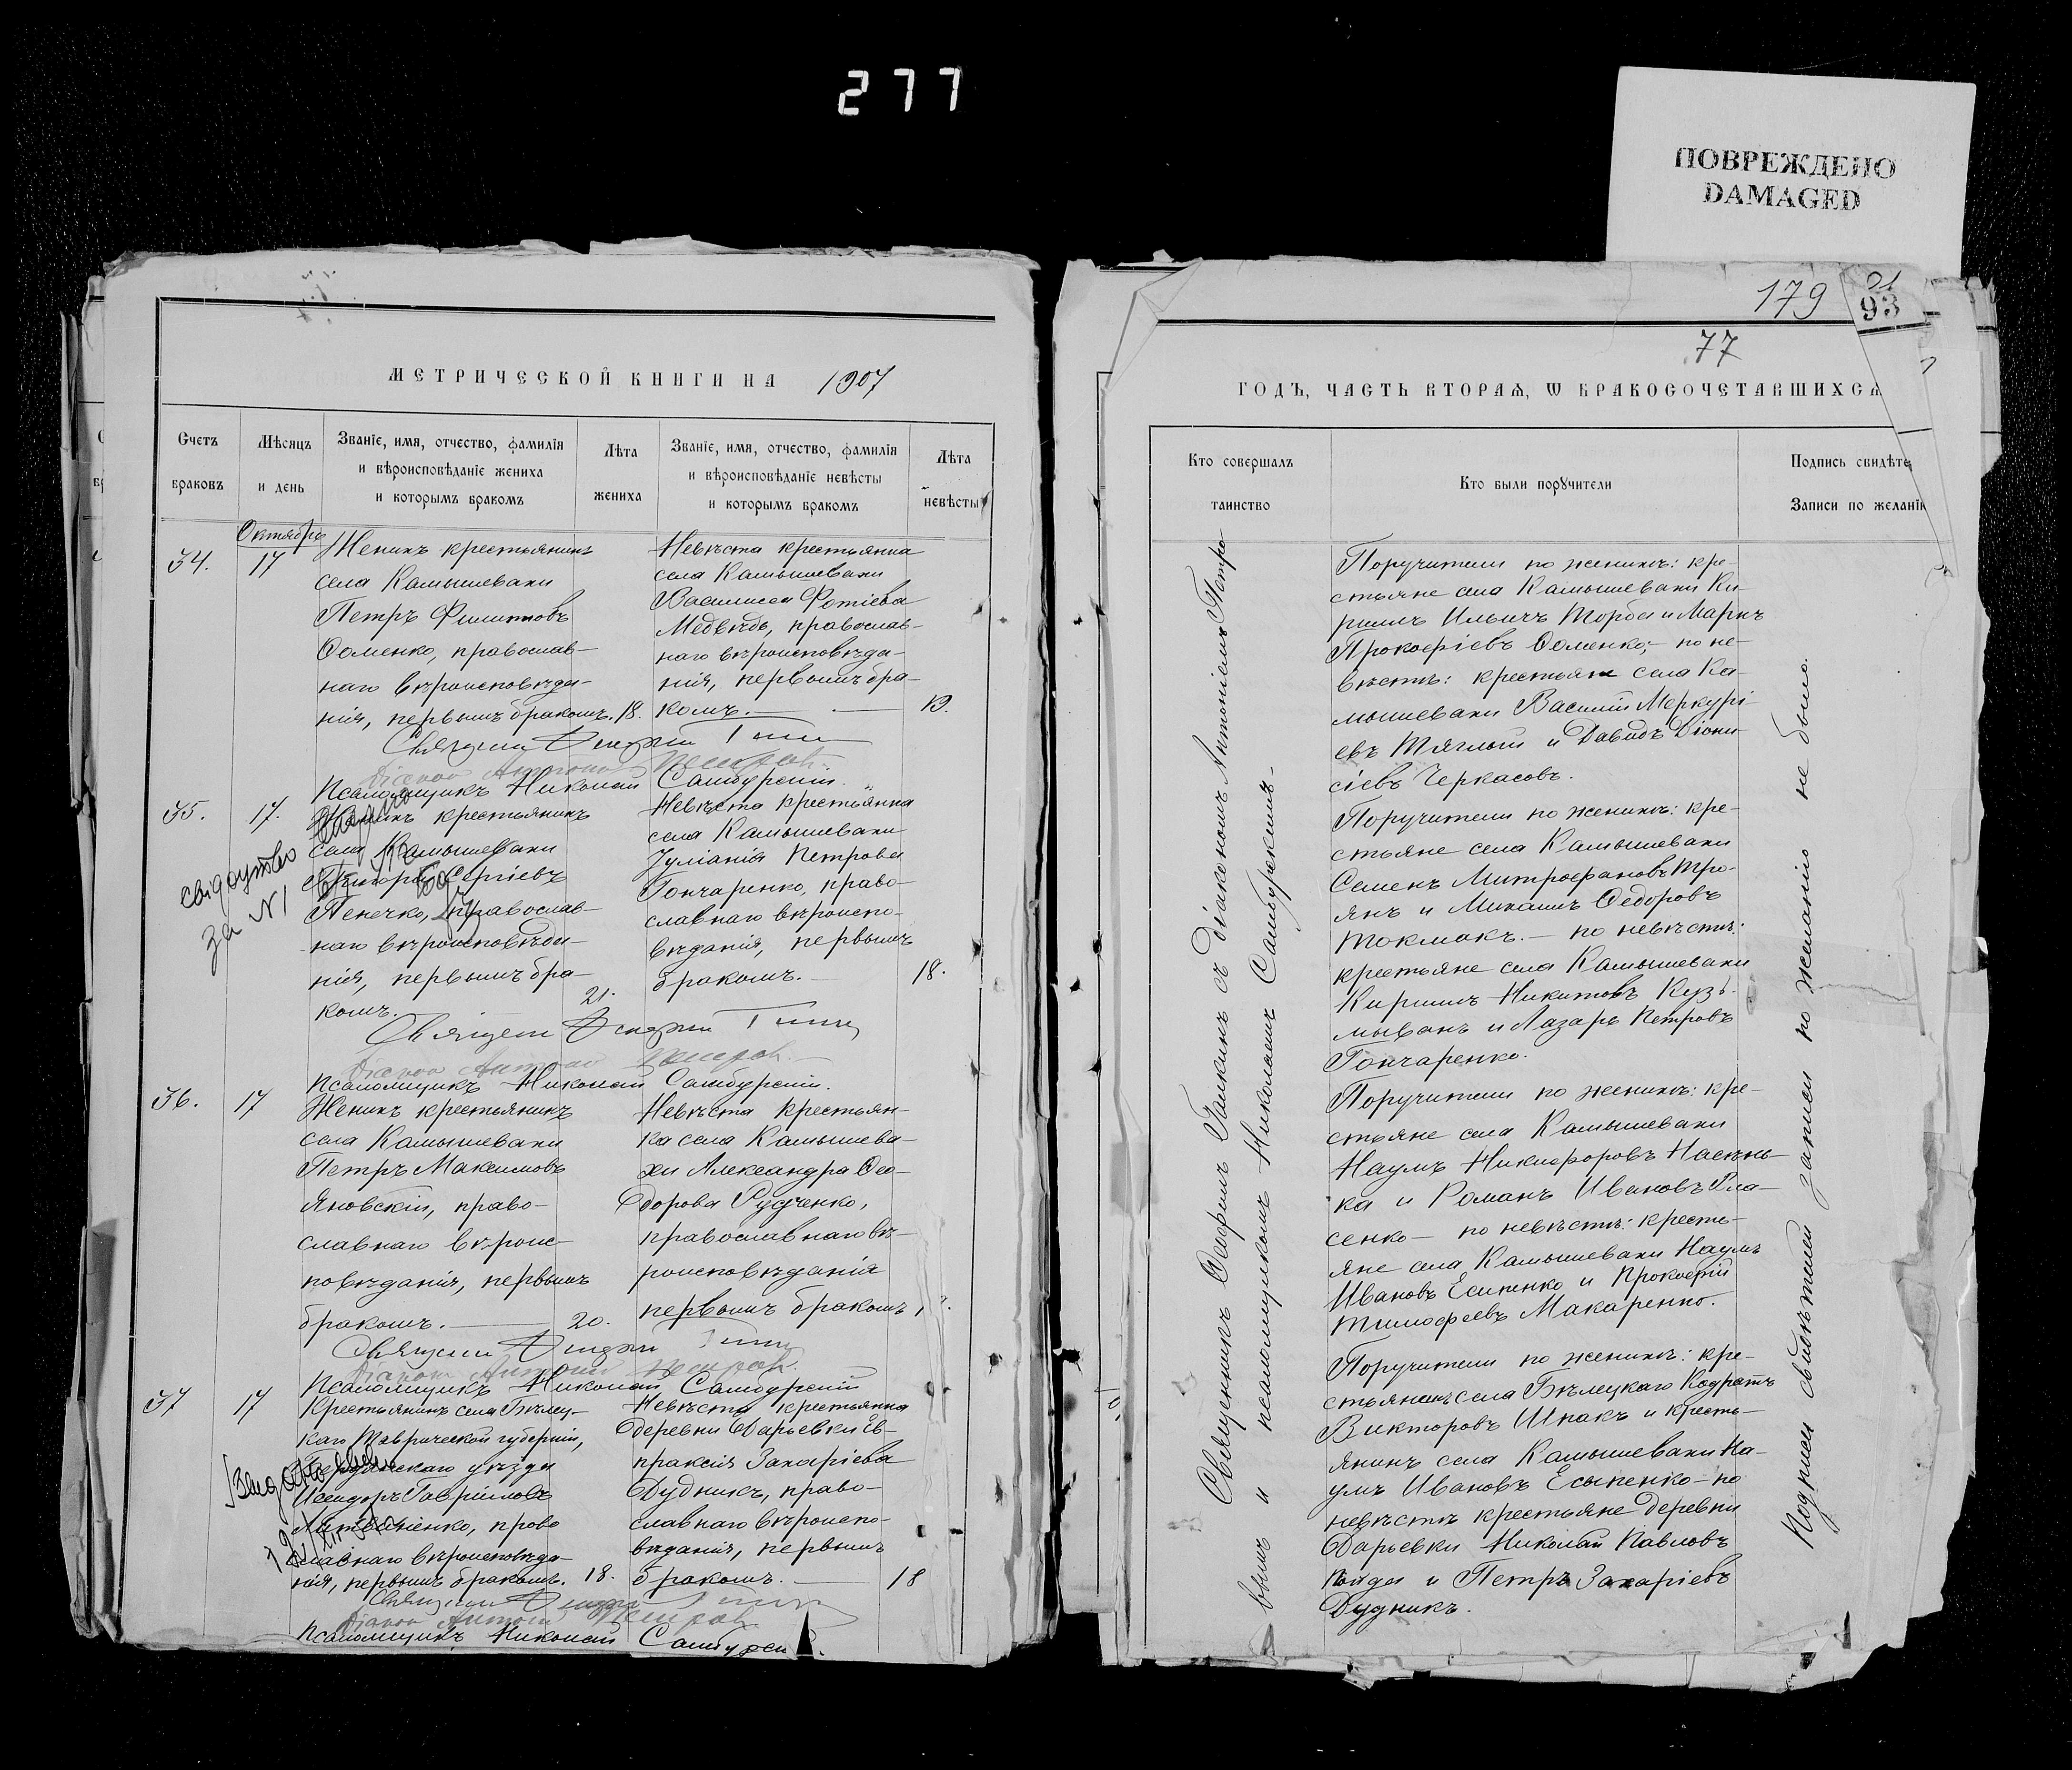 277
ПОВРЕЖДЕНО
DAMAGED
МЕТРИЧЕСКОЙ КНИГИ НА 1907
Счетъ
браковъ
Мѣсяцъ
и день
Званіе, имя, отчество, фамилія
и вѣроисповѣданіе жениха
и которымъ бракомъ
Лѣта
жениха
Званіе, имя, отчество, фамилія
и вѣроисповѣданіе невѣсты
и которымъ бракомъ
Лѣта
невѣсты
Октябрь
34.
17
Женихъ крестьянинъ
села Камышевахи
Петръ Филиповъ
Ѳоменко, православ-
наго вѣроисповѣда-
нія, первымъ бракомъ.
18.
Невѣста крестьянка
села Камышевахи
Василиса Фотіева
Медвѣдь, православ-
наго вѣроисповѣда-
нія, первымъ бра-
комъ.
19.
Діаконъ Антоній Петров
Псаломщикъ Николай Самбурскій.
35.
17.
Женихъ крестьянинъ
села Камышевахи
Григорій Сергіевъ
Пенечко, православ-
наго вѣроисповѣда-
нія, первымъ бра-
комъ.
21.
свідоутво
за N1
Невѣста крестьянка
села Камышевахи
Іуліанія Петрова
Гончаренко, право-
славнаго вѣроиспо-
вѣданія, первымъ
бракомъ.
18.
Діаконъ Антоній Петров
Псаломщикъ Николай Самбурскій.
36.
17
Женихъ крестьянинъ
села Камышевахи
Петръ Максимовъ
Яновскій, право-
славнаго вѣроис-
повѣданія, первымъ
бракомъ.
20.
Невѣста крестьян-
ка села Камышева-
хи Александра Ѳео-
дорова Рудченко,
православнаго вѣ-
роисповѣданія
первымъ бракомъ
Діаконъ Антоній Петров
Псаломщикъ Николай Самбурскій
37
17
Крестьянинъ села Бѣлец-
каго Таврической губерніи,
Бердянскаго уѣзда
Исидоръ Гавріиловъ
Литвиненко, право
славнаго вѣроисповѣда-
нія, первымъ бракомъ.
18.
Невѣста крестьянка
деревни Дарьевки Ев-
праксія Захаріева
Дудникъ, право-
славнаго вѣроиспо-
вѣданія, первымъ
бракомъ.
18
Діаконъ Антоній Петров
Псаломщикъ Николай Самбурскій.
179
93
77
ГОДЪ, ЧАСТЬ ВТОРАЯ, Ѡ БРАКОСОЧЕТАВШИХСЯ
Кто совершалъ
таинство
Кто были поручители
Подпись свидѣте
Записи по желанію
Священникъ Ѳеофилъ Гаикинъ съ Діакономъ Антоніемъ Петро
вымъ и псаломщикомъ Николаемъ Самбурскимъ.
Поручители по женихѣ: кре-
стьяне села Камышевахи Ки-
риллъ Ильичъ Торба и Маркъ
Прокофіевъ Ѳоменко; - по не-
вѣстѣ: крестьяне села Ка-
мышевахи Василій Меркурі-
евъ Тяглый и Давидъ Діони-
сіевъ Черкасовъ.
Поручители по женихѣ: кре-
стьяне села Камышевахи
Семенъ Митрофановъ Тро-
янъ и Михаилъ Ѳедоровъ
Токмакъ. - по невѣстѣ:
крестьяне села Камышевахи
Кириллъ Никитовъ Кузь-
мыванъ и Лазарь Петровъ
Гончаренко.
Поручители по женихѣ: кре-
стьяне села Камышевахи
Наумъ Никифоровъ Насѣнь-
ка и Романъ Ивановъ Вла-
сенко - по невѣстѣ: кресть-
яне села Камышевахи Наумъ
Ивановъ Есипенко и Прокофій
Тимофеевъ Макаренко.
Поручители по женихѣ: кре-
стьянинъ села Бѣлецкаго Кодратъ
Викторовъ Шпакъ и кресть-
янинъ села Камышевахи На-
умъ Ивановъ Есыпенко - по
невѣстѣ крестьяне деревни
Дарьевки Николай Павловъ
и Петръ Захаріевъ
Дудникъ.
Подписи свидѣтелей записи по желанію не было.